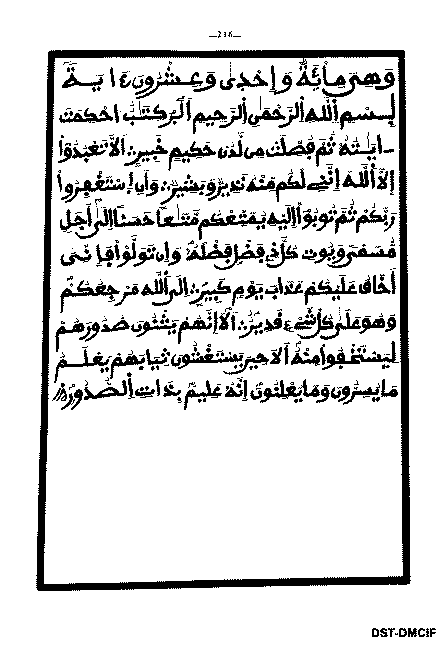 —216—
وَهِيَ مِائَةٌ وَإِحْدَىٰ وَعِشْرُونَ ءَايَةً
بِسْمِ اللَّهِ الرَّحْمَٰنِ الرَّحِيمِ أَلَرۚ كِتَٰبٌ احْكِمَتَ
ـايَٰتُهُۥ ثُمَّ فُصِّلَتْ مِن لَّدُنْ حَكِيمٍ خَبِيرٍ أَلَّا تَعْبُدُوٓا
إِلَّا أَللَّهَ إِنَّنِے لَكُم مِّنْهُ نَذِيرٌ وَبَشِيرٌ وَأَنِ إِسْتَغْفِرُوا
رَبَّكُمْ ثُمَّ تُوبُوٓا إِلَيْهِ يُمَتِّعْكُم مَّتَٰعاً حَسَناً اِلَىٰٓ أَجَلٍ
مُّسَمّىً وَيُوتِ كُلَّ ذِے فَضْلٍ فَضْلَهُۥ وَإِن تَوَلَّوْا فَإِنِّىَ
أَخَافُ عَلَيْكُمْ عَذَابَ يَوْمٍ كَبِيرٍ إِلَى أَللَّهِ مَرْجِعُكُمْ
وَهُوَ عَلَىٰ كُلِّ شَےْءٍ قَدِيرٌ أَلَآ إِنَّهُمْ يَثْنُونَ صُدُورَهُمْ
لِيَسْتَخْفُوا مِنْهُ أَلَا حِينَ يَسْتَغْشُونَ ثِيَابَهُمْ يَعْلَمُ
مَا يُسِرُّونَ وَمَا يُعْلِنُونَ إِنَّهُۥ عَلِيمٌۢ بِذَاتِ أِلصُّدُورِ
DST-DMCIF